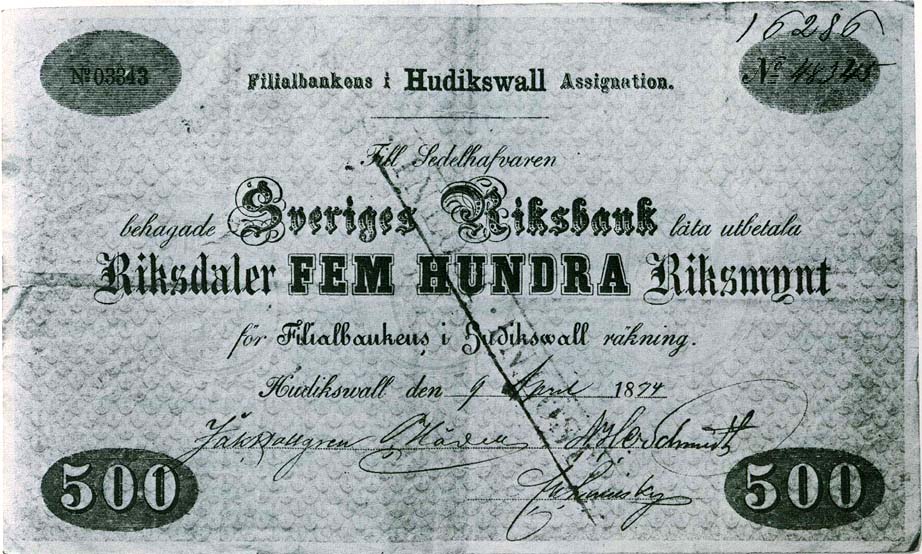 16286
Nº 03343
Filialbankens i Hudikswall Assignation.
Nº 48345
Till Sedelhafvaren
behagade Sveriges Riksbank låta utbetala
Riksdaler FEM HUNDRA Riksmynt
för Filialbankens i Hudikswall räkning.
Hudikswall den 9 April 1874
500
500